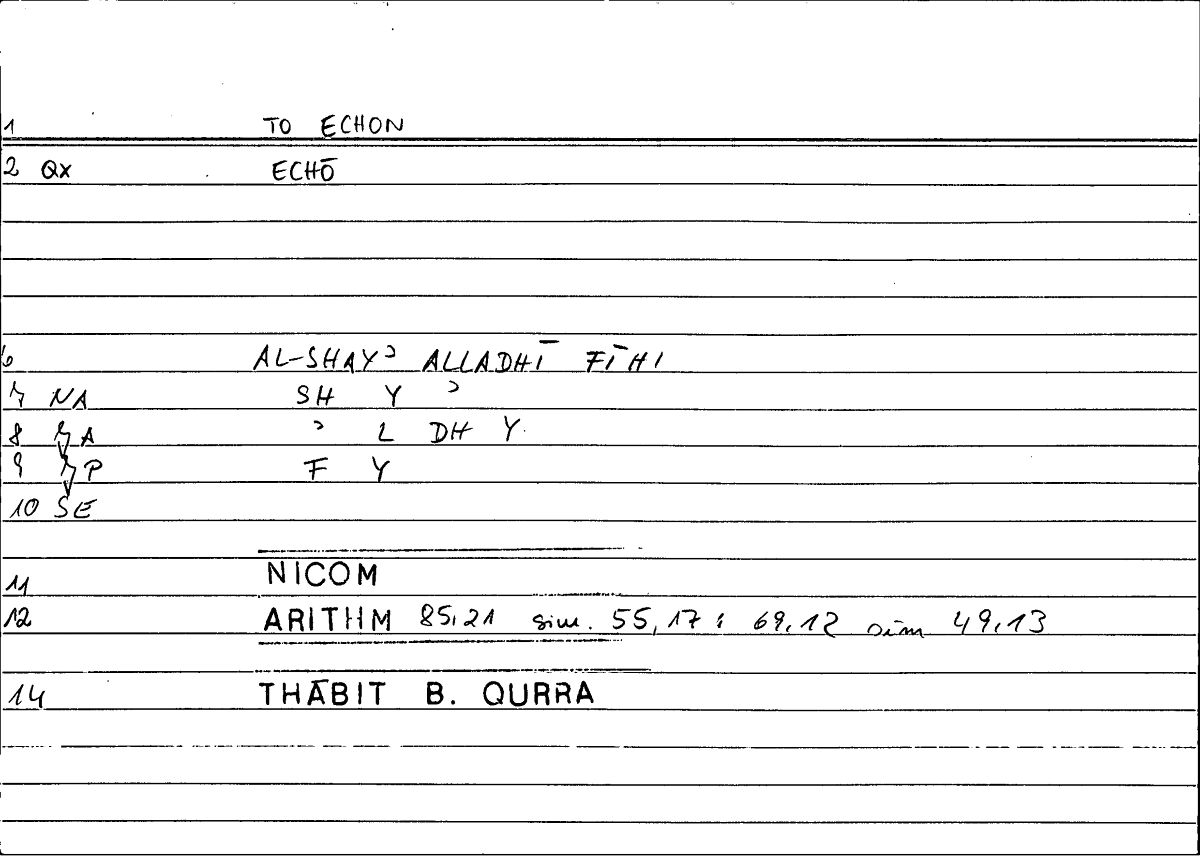 1 TO ECHON
2 QX ECHŌ
6 AL-SHAYʾ ALLADHĪ FĪHI
7 NA SH Y ʾ
8 A ʾ L DH Y
9 P F Y
10 SE
11 NICOM
12 ARITHM 85,21 sim. 55,17 : 69,12 sim 49,13
14 THĀBIT B. QURRA